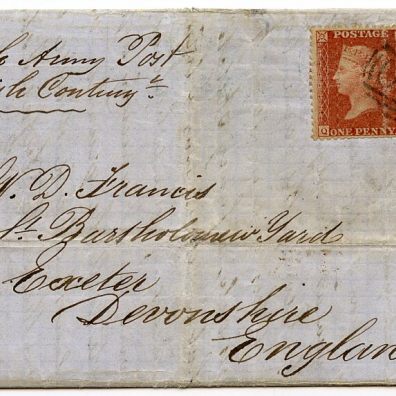 Army Post
POSTAGE
ONE PENNY
W. D. Francis
St Bartholomew Yard
Exeter
Devonshire
Englan